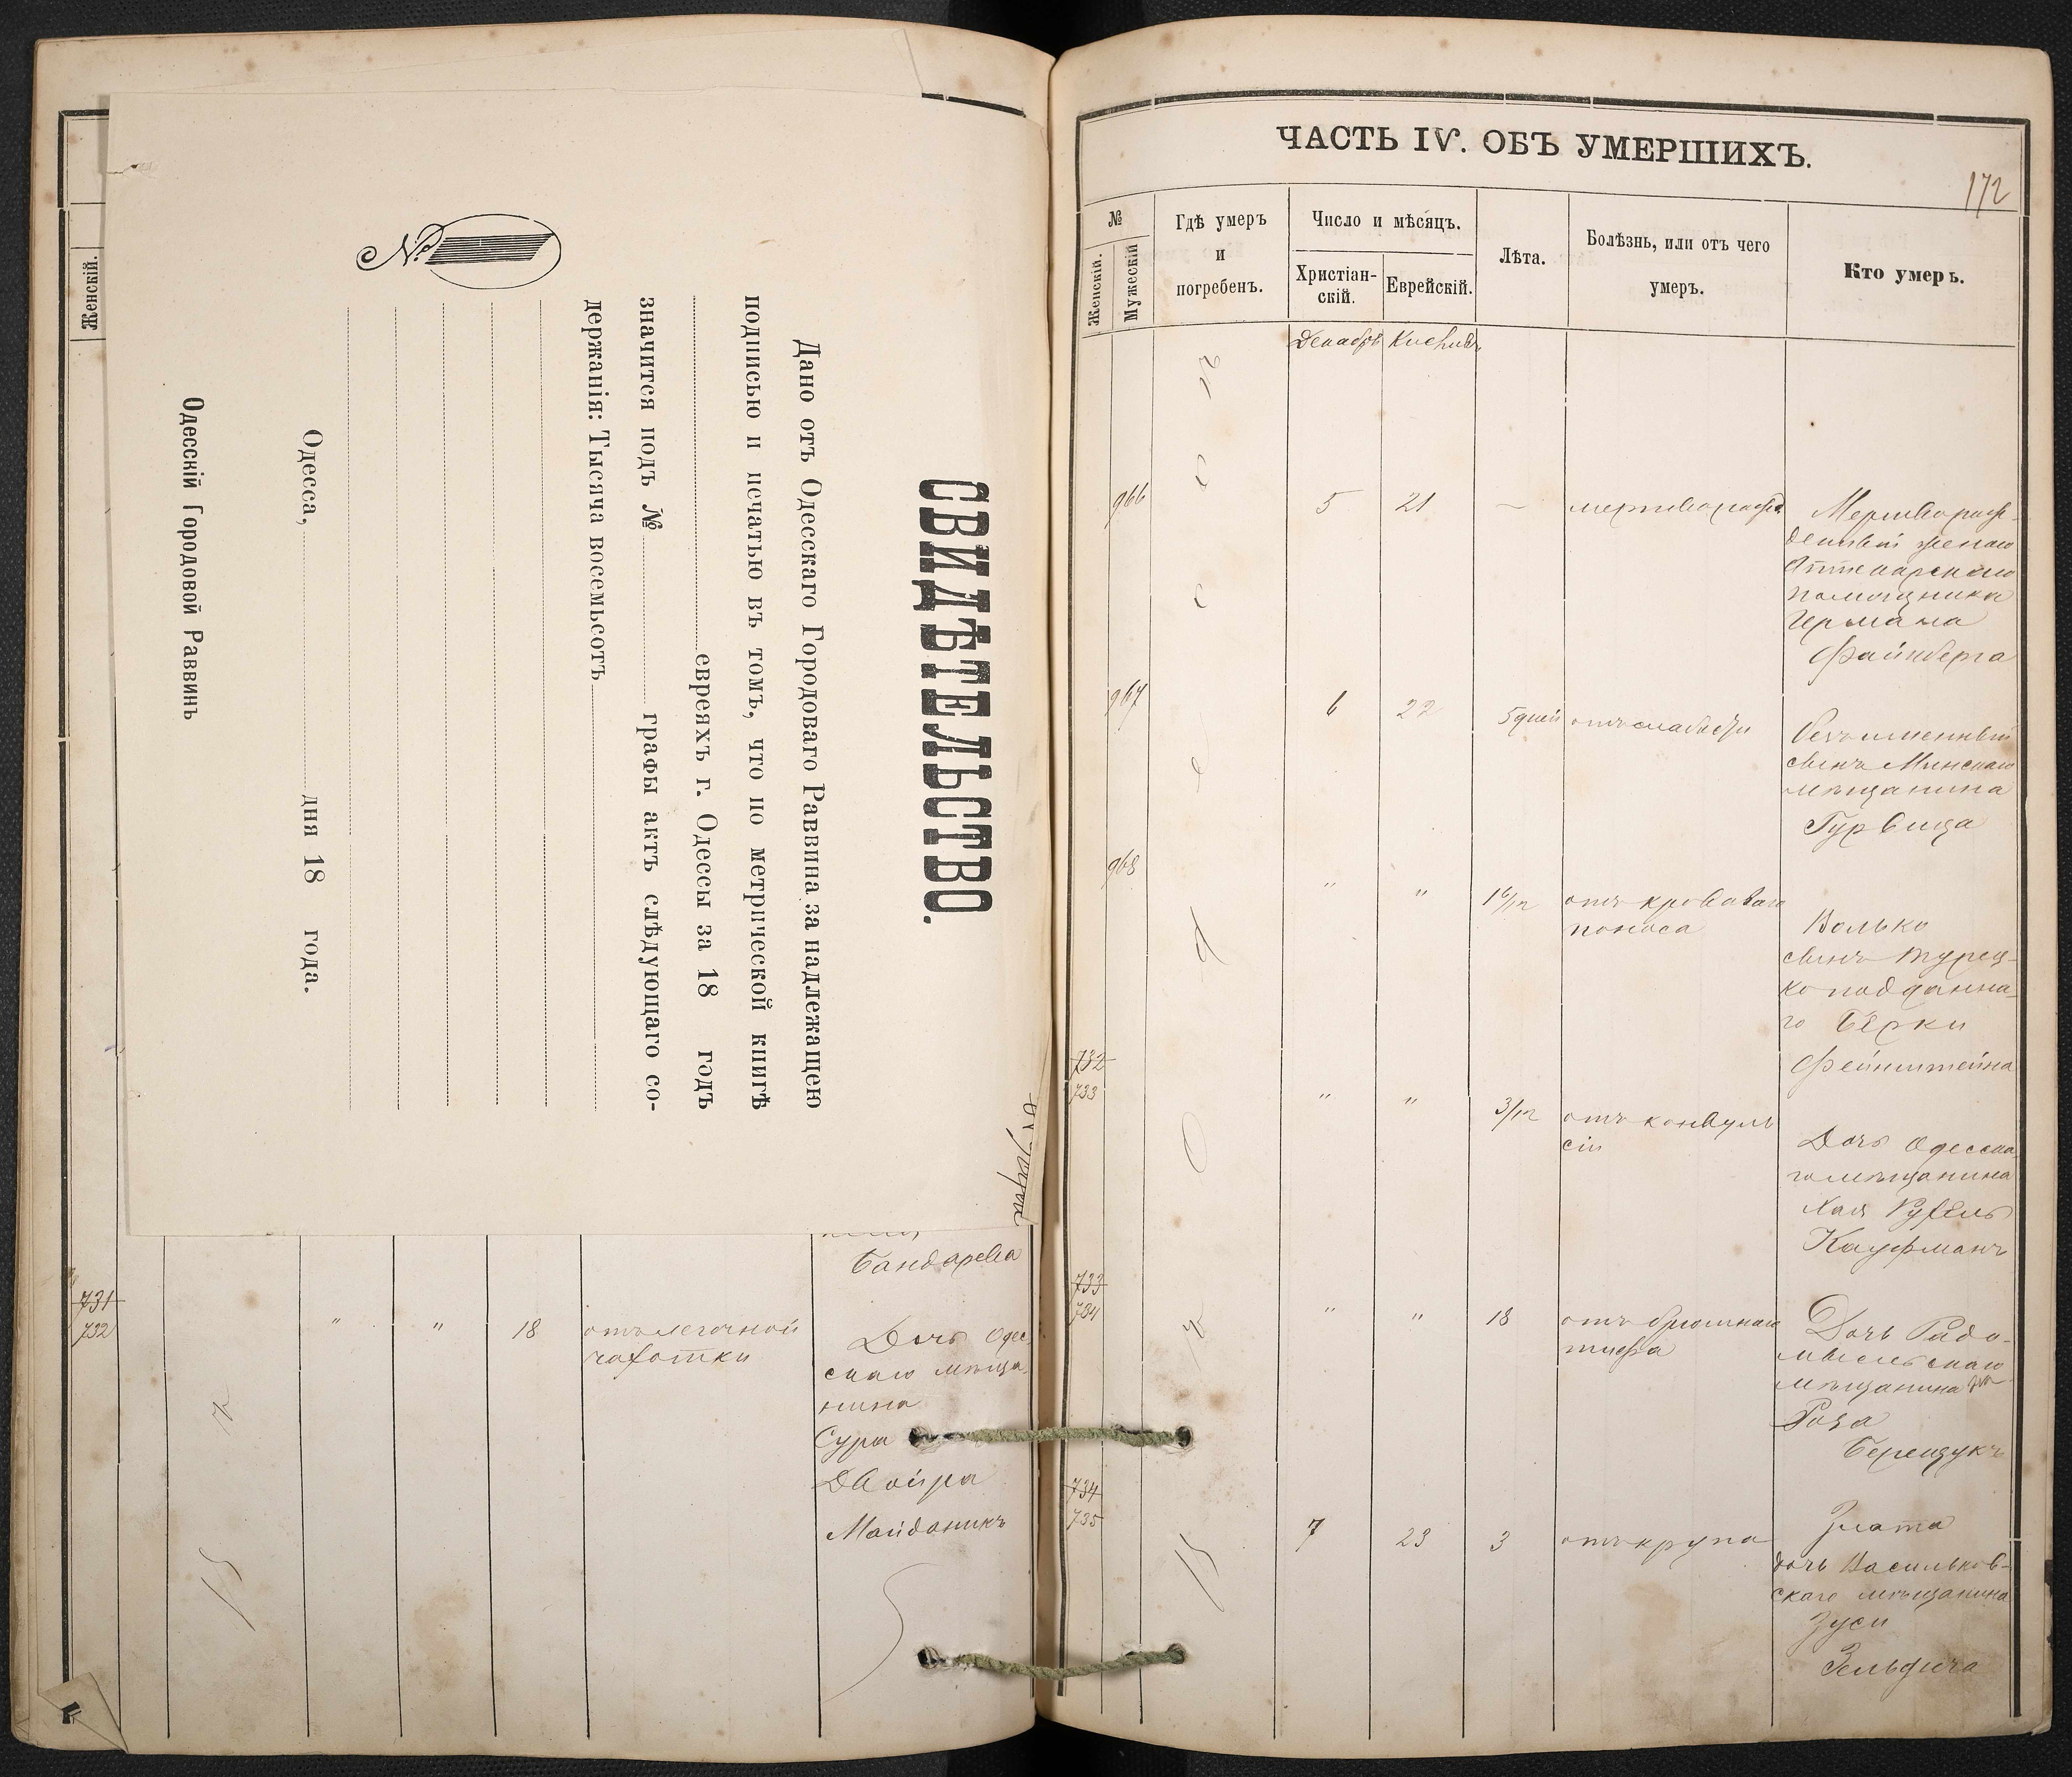 Женскій.
СВИДѢТЕЛЬСТВО.
Дано отъ Одесскаго Городоваго Раввина за надлежащею
подписью и печатью въ томъ, что по метрической книгѣ
евреяхъ г. Одессы за 18 годъ
значится подъ № графы актъ слѣдующаго со-
держанія: Тысяча восемьсотъ
№
Одесса, дня 18 года.
Одесскій Городовой Раввинъ
Бандарева
731
732
" " 18 отъ легочной
чахотки
Дочь Одес-
скаго мѣща-
нина
Сура
Двойра
Майданикъ
ЧАСТЬ IV. ОБЪ УМЕРШИХЪ.
172
№
Женскій.
Мужескій
Гдѣ умеръ
и
погребенъ.
Число и мѣсяцъ.
Христіан-
скій.
Еврейскій.
Лѣта.
Болѣзнь, или отъ чего
умеръ.
Кто умеръ.
Декабрь Кислевъ
966 5 21 — мертворожд.
Мертворож-
денный женою
Аптекарскаго
помощника
Германа
Файнберга
967 6 22 5 дней отъ слабости
Безъименный
сынъ Минскаго
мѣщанина
Гурвица
968 " " 1 6/12 отъ кроваваго
поноса
Волько
сынъ Турец-
ко подданна-
го Берки
Фейнштейна
732
733
" " 3/12 отъ конвуль
сіи
Дочь Одесска-
го мѣщанина
Хая Рухель
Кауфманъ
733
734
" " 18 отъ брюшнаго
тифа
Дочь Радо-
мысльскаго
мѣщанина
Роза
Берещукъ
734
735
7 23 3 отъ крупа
Злата
дочь Васильков-
скаго мѣщанина
Зуси
Зельдича